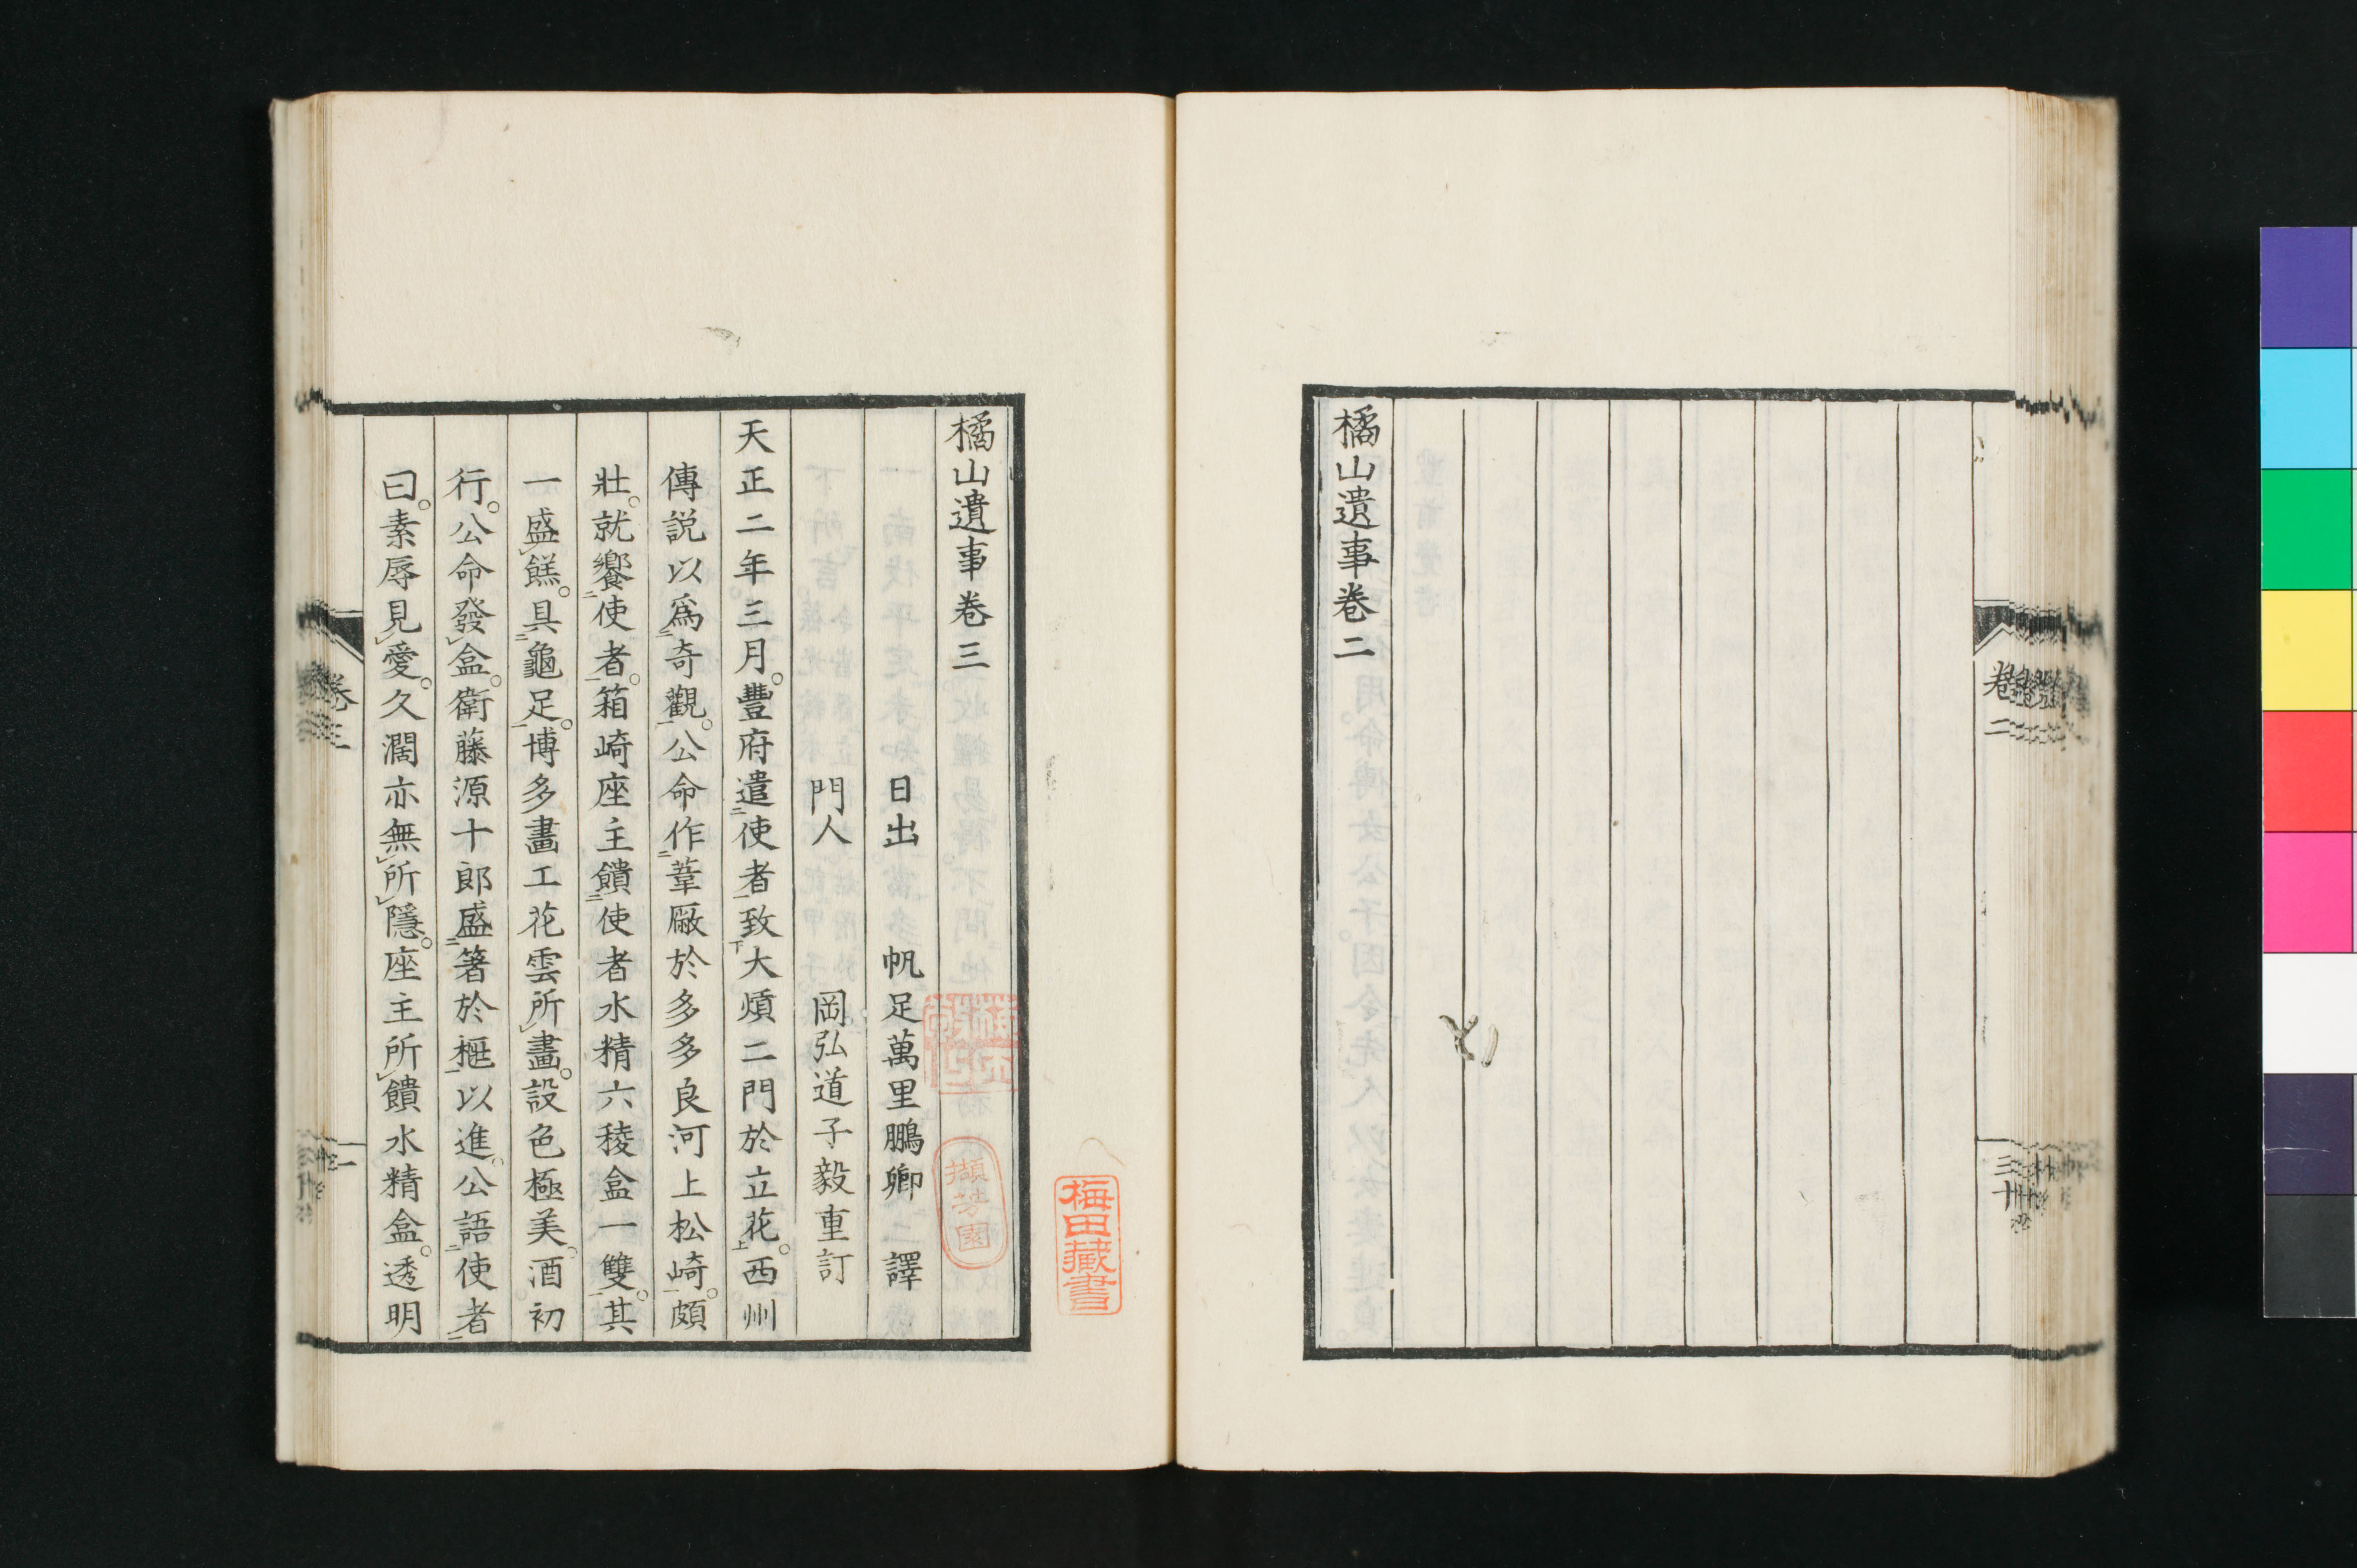 橘山遺事卷二
卷二
三十
橘山遺事卷三
日出　帆足萬里鵬卿　譯
門人　岡弘道子毅重訂
天正二年三月。豐府遣二使者一致下大煩二門於立花上。西州
傳説以爲二奇觀一。公命作二葦廠於多多良河上松崎一。頗
壯。就饗二使者一。箱崎座主饋二使者水精六稜盒一雙一。其
一盛レ餻。具二龜足一。博多畫工花雲所レ畫。設色極美。酒初
行。公命發レ盒。衛藤源十郎盛二箸於榧一以進。公語二使者一
曰。素辱見レ愛。久濶亦無レ所レ隱。座主所レ饋水精盒。透明
卷三
一
擷芳園
梅田藏書